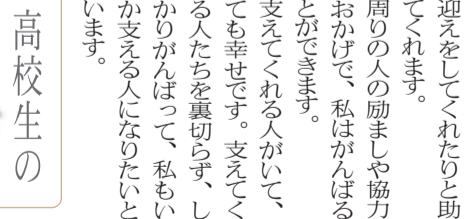 迎えをしてくれたりと助
てくれます。
周りの人の励ましや協力
おかげで、私はがんばる
とができます。
支えてくれる人がいて、
ても幸せです。支えてく
る人たちを裏切らず、し
かりがんばって、私もい
か支える人になりたいと
います。
高校生の